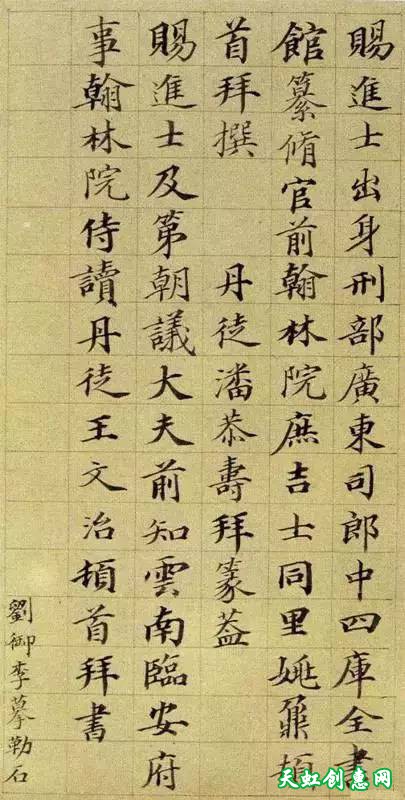 賜進士出身刑部廣東司郎中四庫全書
館纂脩官前翰林院庶吉士同里姚鼐頓
首拜撰 丹徒潘恭壽拜篆蓋
賜進士及第朝議大夫前知雲南臨安府
事翰林院侍讀丹徒王文治頓首拜書
劉御李摹勒石
天虹创惠网